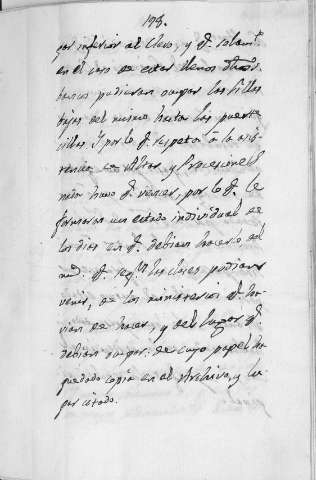 193.
por inferior al Clero, y q.e solam.te
en el caso de estar llenos dhos
bancos pudieran ocupar las sillas
bajas del mismo hasta las puerte
cillas. Y por lo q.e respeta à la asis-
tencia en Altar, y Procesiones
nada huvo q.e vencer, por lo q.e se
formaron un estado individual de
los dias en q.e debian hacerlo del
q.e seg.n las clases podian
venir, de los ministerios q.e ha-
vian de hacer, y del lugar q.e
debian ocupar: de cuyo papel ha
quedado copia en el Archivo, y lu-
gar citado.